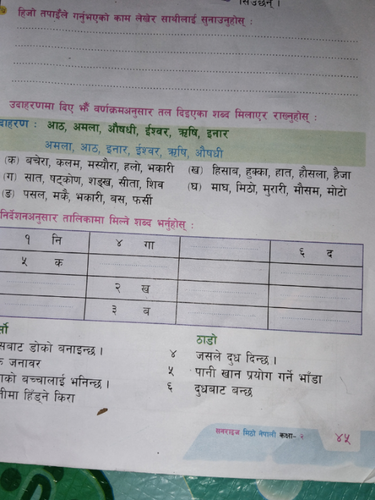 सिउँछन् ।
हिजो तपाईंले गर्नुभएको काम लेखेर साथीलाई सुनाउनुहोस् :
उदाहरणमा दिए झैँ वर्णक्रमअनुसार तल दिइएका शब्द मिलाएर राख्नुहोस् :
दाहरण : आठ, अमला, औषधी, ईश्वर, ऋषि, इनार
अमला, आठ, इनार, ईश्वर, ऋषि, औषधी
(क) बचेरा, कलम, मस्यौरा, हलो, भकारी (ख) हिसाब, हुक्का, हात, हौसला, हैजा
(ग) सात, षट्कोण, शङ्ख, सीता, शिव (घ) माघ, मिठो, मुरारी, मौसम, मोटो
(ङ) पसल, मकै, भकारी, बस, फर्सी
निर्देशनअनुसार तालिकामा मिल्ने शब्द भर्नुहोस् :
१ नि ४ गा ६ द
५ क
२ ख
३ ब
र्सो ठाडो
सबाट डोको बनाइन्छ । ४ जसले दुध दिन्छ ।
जनावर ५ पानी खान प्रयोग गर्ने भाँडा
को बच्चालाई भनिन्छ । ६ दुधबाट बन्छ
मा हिँड्ने किरा
सनराइज मिठो नेपाली कक्षा- १ ४५